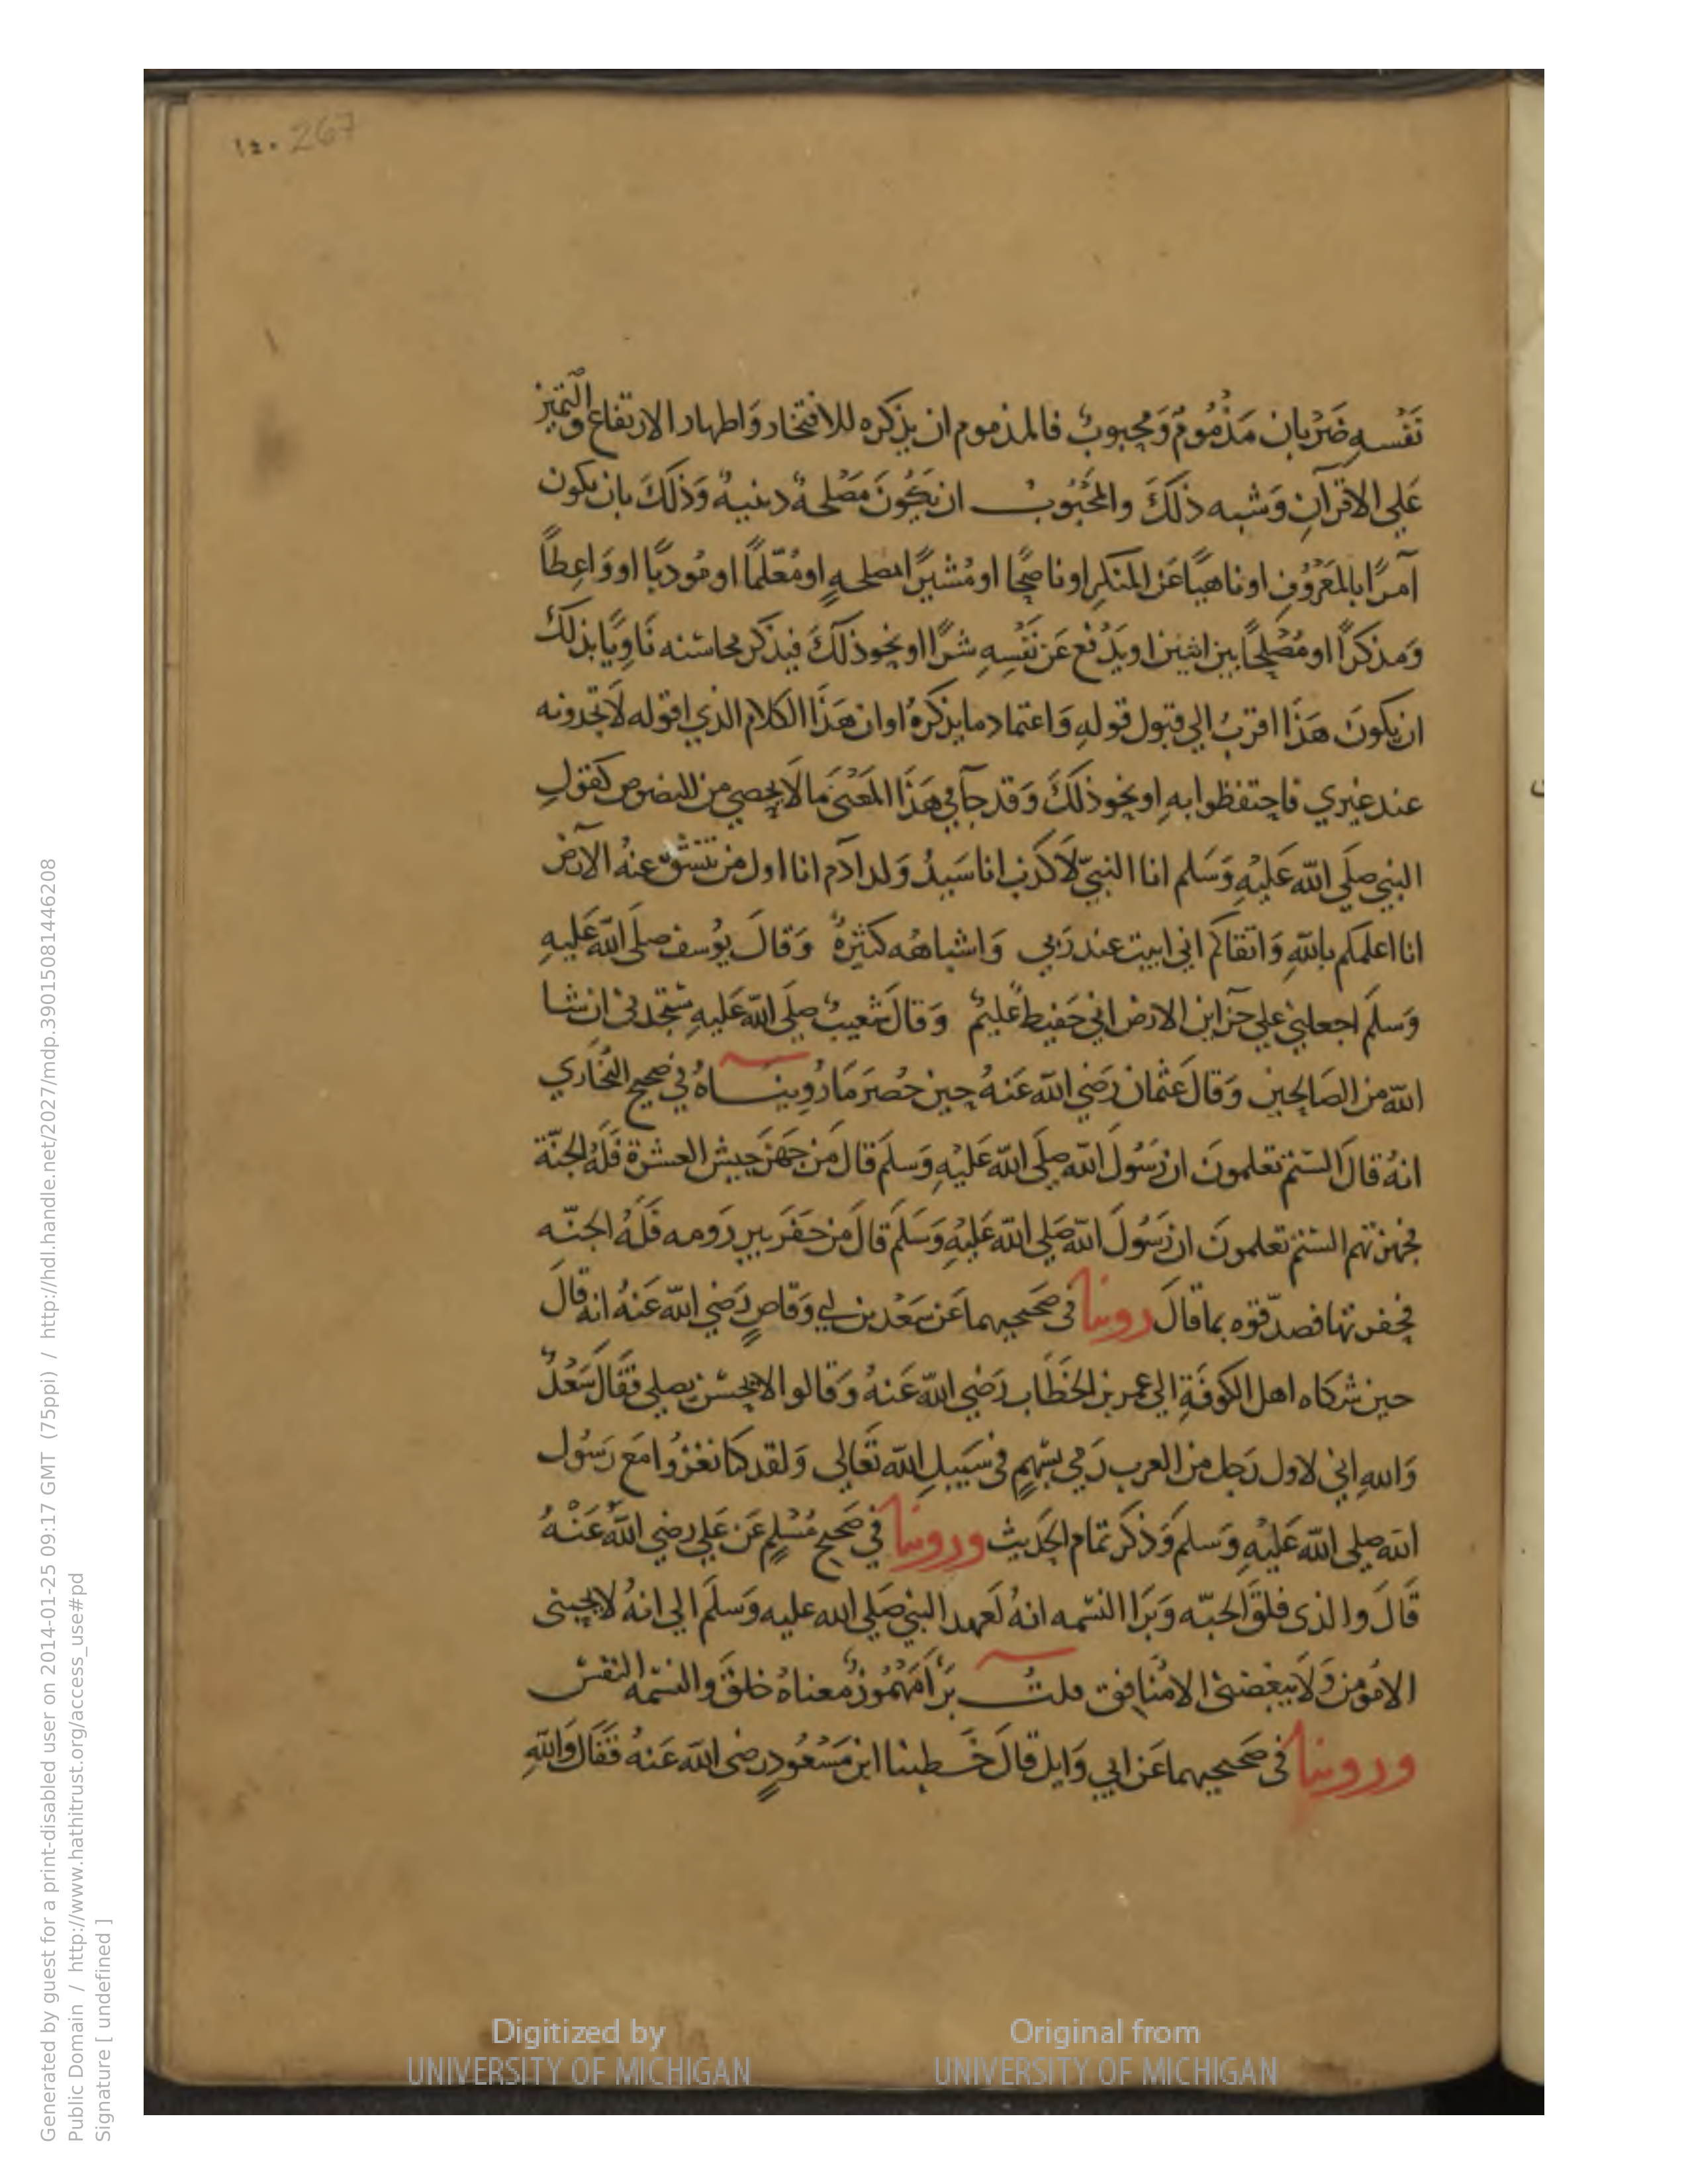 ١٤٠ 267
نَفْسِهِ ضَرْبان مَذْمُومٌ وَمحبوبٌ فالمذموم ان يذكره للافتخار وَاظهار الارتفاع والتميّز
عَلي الاقرانِ وَشبه ذلكَ والمَحْبُوبُ ان يَكُونَ مَصْلحةٌ دينيةٌ وَذلكَ بان يكون
آمرًا بالمَعْرُوْفِ اوناهيًا عَن المنكرِ اوناصحًا اومُشيرًا بمصلحهٍ اومُعَلّمًا اومُودّبًا اووَاعِظًا
وَمذكرًا اومُصْلِحًا بين اثنين اويَدْفع عَن نَفْسِهِ شرًّا اونحو ذلكَ فيذكر محاسنه نَاوِيًا بذلكَ
ان يكونَ هَذَا اقربُ الي قبول قولهِ وَاعتماد مايذكرهُ اوان هَذَا الكلام الذي اقوله لَاتجدونه
عند غيري فاحتفظوا بهِ اونحو ذلكَ وَقد جآ في هَذَا المَعْنَي مالَايحصي من النصوص كقولِ
النبي صلَي الله عَليْهِ وَسَلم انا النبيّ لَاكذب انا سَيدُ وَلد ادَم انا اول من تنشقّ عنهُ الارض
انا اعلمكم باللهِ وَاتقاكم اني ابيت عند رَبي وَاشباهُه كثيرةٌ وَقالَ يوُسف صلَى الله عَليهِ
وَسلم اجعلني علي خزاين الارض اني حَفيظ عَليمٌ وَقالَ شُعيبٌ صلَي الله عَليهِ ستجدني ان شا
الله من الصَالحين وَقال عثمان رَضي الله عَنهُ حين حُصرَ مَا رُويناهُ في صحيح البُخَاري
انهُ قالَ الستم تعلمونَ ان رَسُولَ الله صلَى الله عَليْهِ وَسلمَ قالَ مَن جَهزَ جيش العسْرة فَلَهُ الجنّة
فجهزتهم الستم تعلمونَ ان رَسُولَ الله صَلي الله عَليْهِ وَسَلمَ قالَ مَن حَفَر بير رَومه فَلَهُ الجنّه
فحفرتها فصدّقوه بماقالَ روينا في صَحيحيهما عَن سَعْد بن ابي وَقاصٍ رَضي الله عَنهُ انه قالَ
حين شكاه اهل الكوفَةِ الي عمر بن الخطَاب رَضي الله عَنهُ وَقالوا لايحسْن يصلي فقالَ سَعْدٌ
وَاللهِ اني لاول رَجل من العرب رَمي بسَهْمٍ في سَبيلِ الله تَعَالي وَلقد كنا نغزُوا مَع رَسُول
الله صلي الله عَليْهِ وَسلم وَذكرَ تمام الحَديث وروينا في صَحيح مُسْلمٍ عَن عَلي رضي اللهُ عَنْهُ
قَالَ والذي فلقَ الحبّه وَبَرَا النسَمه انهُ لَعهد النبي صَلي الله عليه وَسلمَ الي انهُ لايحبني
الامُومن وَلَايبغضني الامُنافق قلتُ بَرَأ مَهْمُوزٌ معناهُ خلقَ والنسَمه النفسْ
وروينا في صَحيحيهما عَن ابي وَايل قالَ خَطبنا ابن مَسْعُودٍ رضي الله عَنهُ فقَالَ وَاللهِ
Digitized by
UNIVERSITY OF MICHIGAN
Original from
UNIVERSITY OF MICHIGAN
Generated by guest for a print-disabled user on 2014-01-25 09:17 GMT (75ppi) / http://hdl.handle.net/2027/mdp.39015081446208
Public Domain / http://www.hathitrust.org/access_use#pd
Signature [ undefined ]